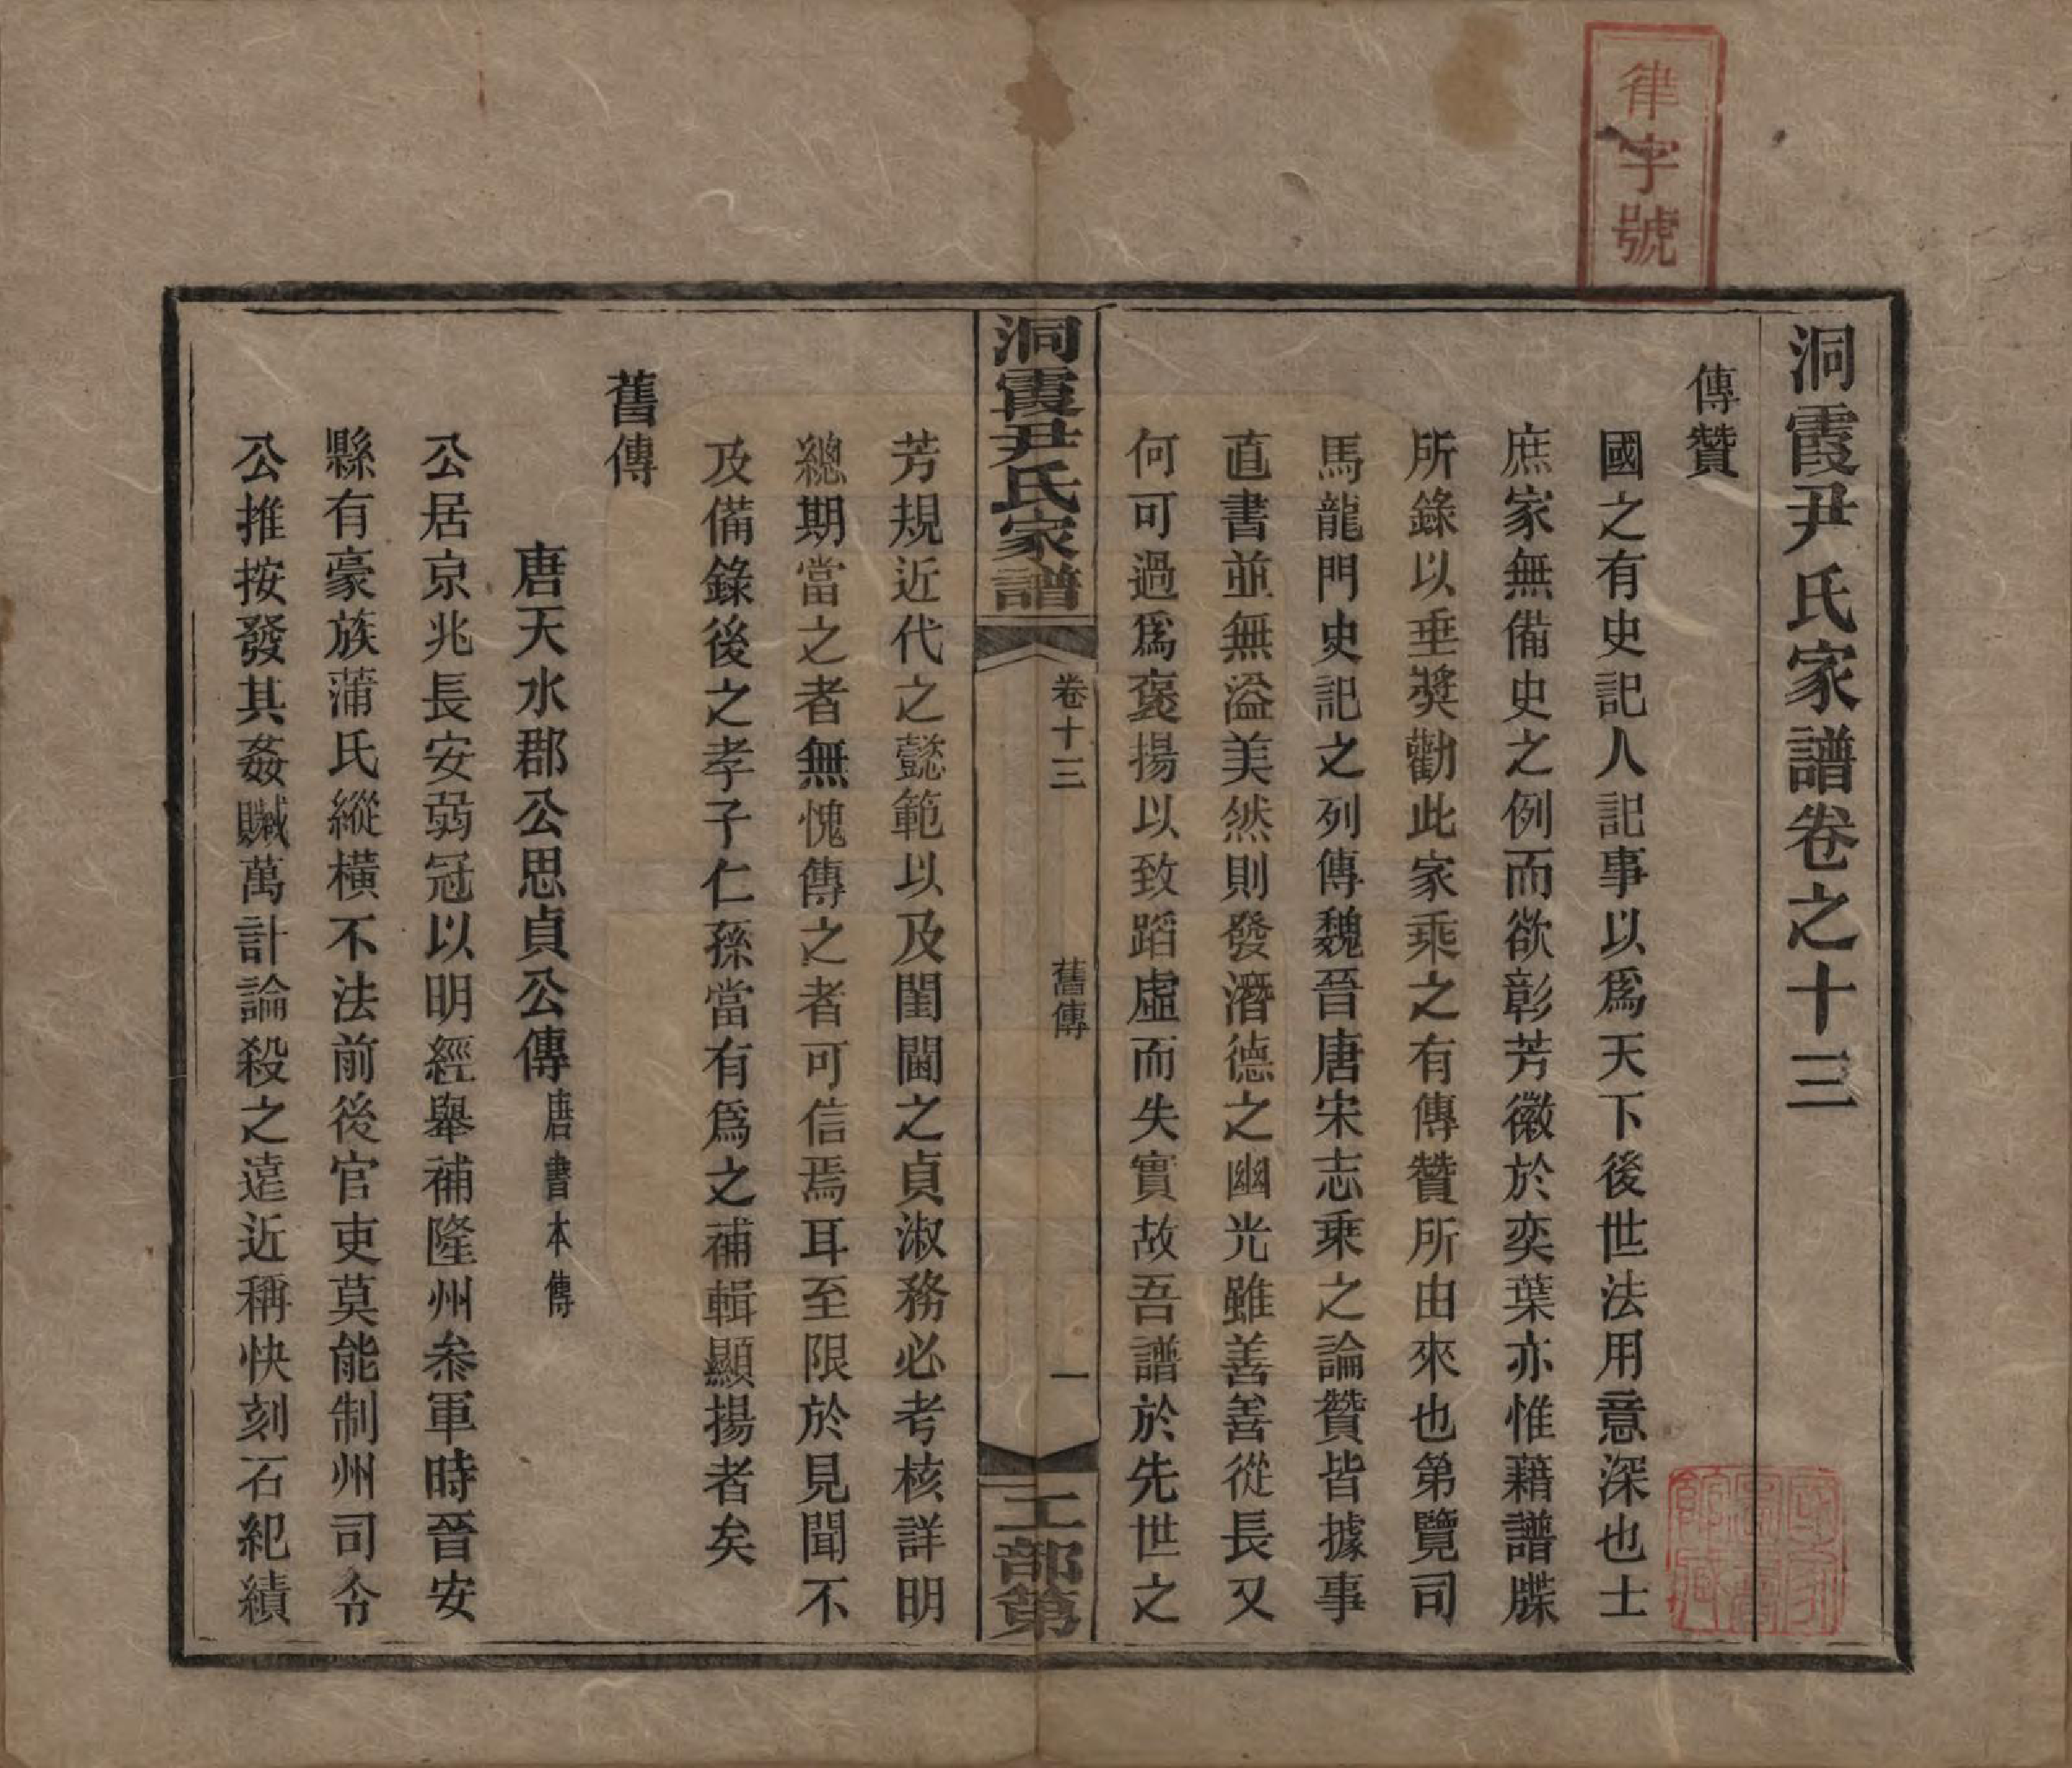 律字號
洞霞尹氏家譜卷之十三
傳贊
國之有史記人記事以爲天下後世法用意深也士
庶家無備史之例而欲彰芳徽於奕葉亦惟藉譜牒
所錄以垂獎勸此家乘之有傳贊所由來也第覽司
馬龍門史記之列傳魏晉唐宋志乘之論贊皆據事
直書並無溢美然則發潛德之幽光雖善善從長又
何可過爲褒揚以致蹈虛而失實故吾譜於先世之
洞霞尹氏家譜
卷十三
舊傳
一
工部第
芳規近代之懿範以及閨閫之貞淑務必考核詳明
總期當之者無愧傳之者可信焉耳至限於見聞不
及備錄後之孝子仁孫當有爲之補輯顯揚者矣
舊傳
唐天水郡公思貞公傳唐書本傳
公居京兆長安弱冠以明經舉補隆州叅軍時晉安
縣有豪族蒲氏縱橫不法前後官吏莫能制州司令
公推按發其姦贓萬計論殺之遠近稱快刻石紀績